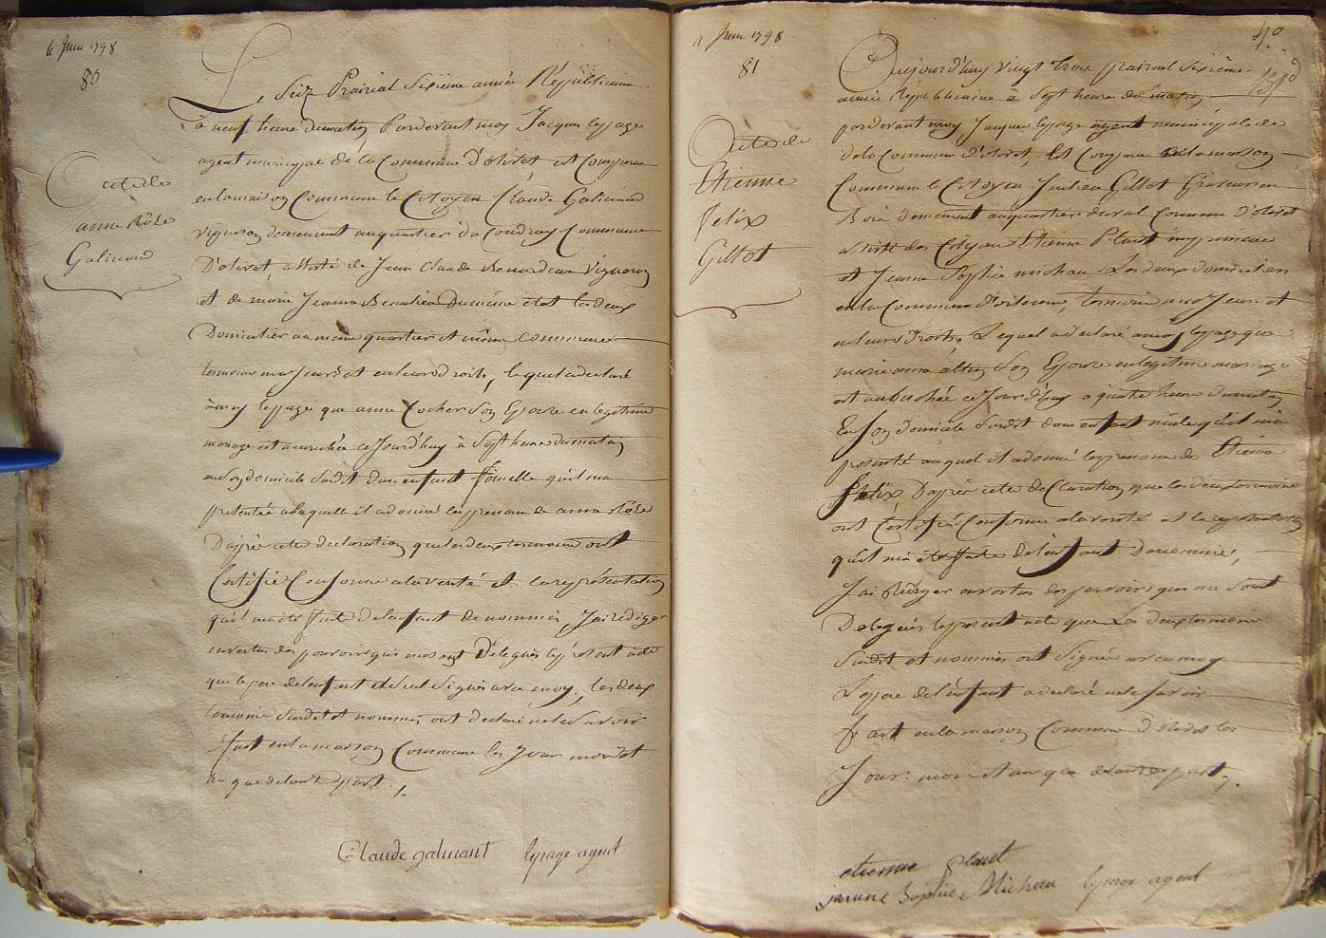 6 Juin 1798
80
Acte de
anne Rose
Galinand
Le Seize Prairial Sixieme année Républicaine
à neuf heure du matin Pardevant moy Jacque lepage
agent municipal de la Commune D'olivet est Comparu
en la maison Commune le Citoyen Claude Galinand
vigneron demeurant au quartier du Coudray Commune
D'olivet assisté de Jean Claude Vigneron
et de marie Jeanne Beaulieu Du même état les deux
Domiciliés au même quartier et même Commune
temoins majeurs et en leurs droits, lequel a declaré
à moy lepage que anne Rocher Son Epouse en legitime
mariage est accouchée ce Jourd'huy à Sept heures du matin
en Son domicile Susdit d'un enfant femelle qu'il m'a
presentée a laquelle il a donné les prenoms de anne Rose
D'après cette declaration que les deux temoins ont
Certifié Conforme a la verité et la représentation
qui m'a été faite de l'enfant denommée, J'ai rediger
en vertu des pouvoirs qui me sont Délegués le présent acte
que le pere de l'enfant a Seul Signé avec moy, les deux
temoins Susdit et nommés, ont declaré ne le Savoir
fait en la maison Commune les Jour mois et
an que de l'autre part.
Claude galinant lepage agent
11 Juin 1798
81
40
Acte de
Etienne
felix
Gillot
Aujourd'huy vingt trois prairial Sixième
année Républicaine à Sept heure du matin
pardevant moy Jacque lepage agent municipale de
de la Commune D'olivet, Est Comparu en la maison
Commune le Citoyen Julien Gillot
demeurant au quartier du val Commune D'olivet
assisté des Citoyen Etienne Plaut
et Jeanne Sophie michau Les deux domiciliés
en la Commune D'orleans, temoins majeurs et
en leurs Droits, Lequel a declaré a moy lepage que
marie anne Son Epouse en legitime mariage
est accouchée ce Jourd'huy a quatre heure du matin
En Son domicile Susdit d'un enfant mâle qu'il m'a
presenté auquel il a donné les prenoms de Etienne
felix, D'après cette declaration que les deux temoins
ont Certifié Conforme a la verité et la representation
qu'il m'a été faite de l'enfant denommé,
J'ai Rédiger en vertu des pouvoirs qui me Sont
Delegués le present acte que Les deux temoins
Susdit et nommés ont Signé avec moy
Le pere de l'enfant a declaré ne le Savoir
fait en la maison Commune D'olivet les
Jour, mois et an que de l'autre part.
etienne plaut
janne Sophie Micheau lepage agent